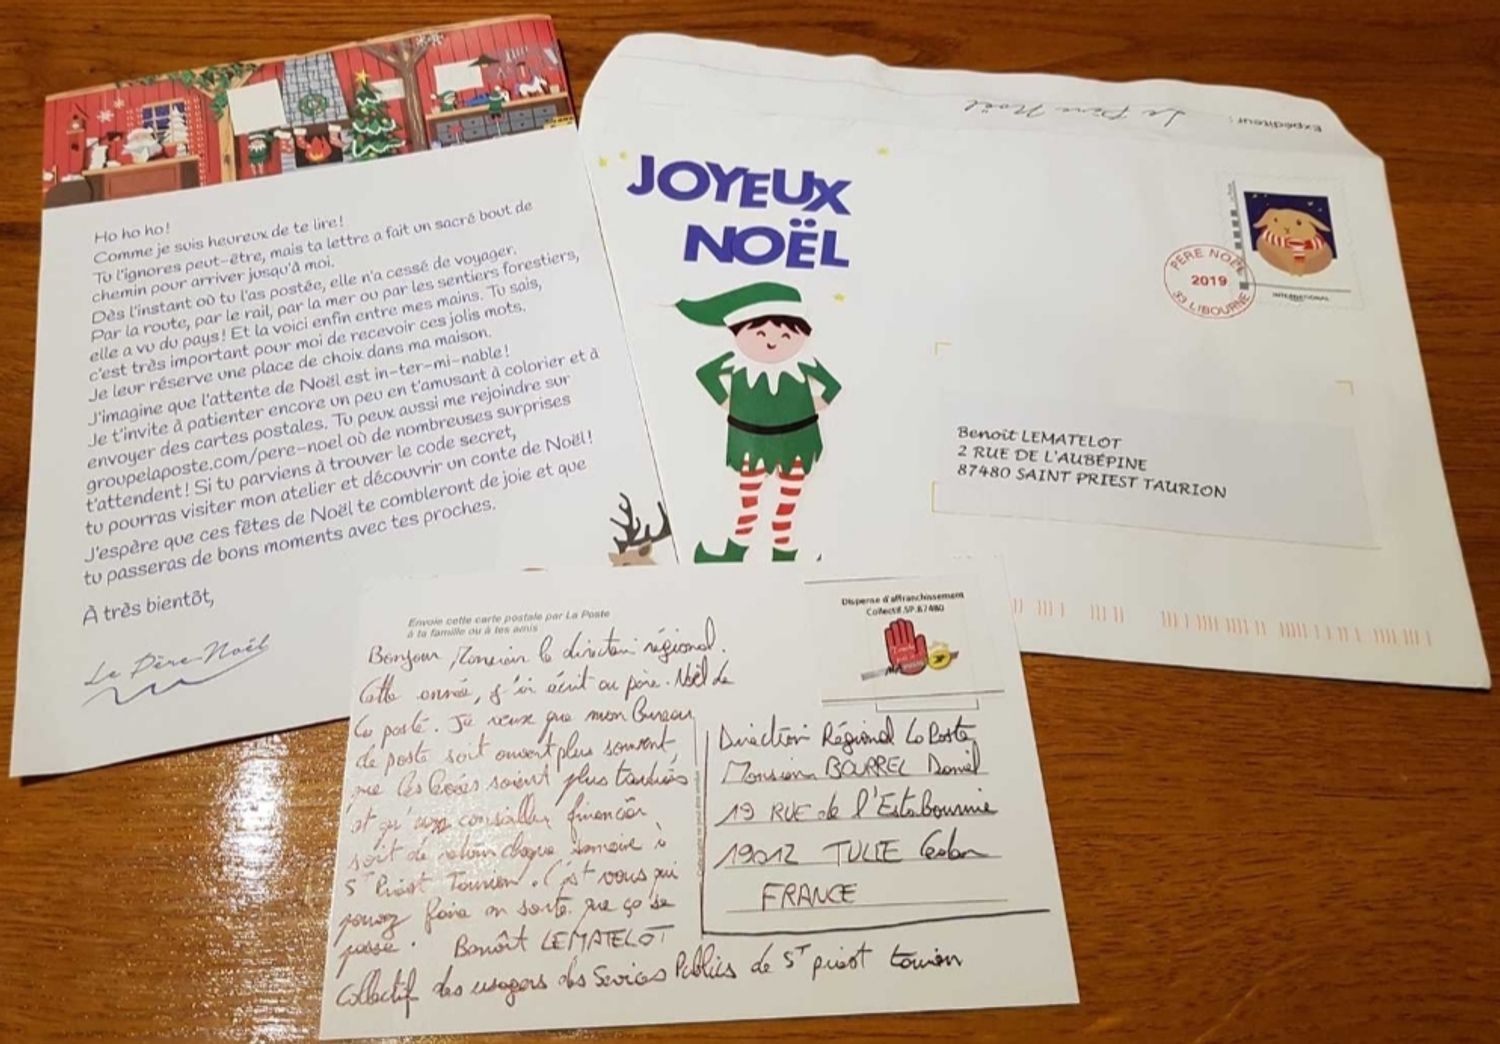 Ho ho ho!
Comme je suis heureux de te lire!
Tu l'ignores peut-être, mais ta lettre a fait un sacré bout de
chemin pour arriver jusqu'à moi.
Dès l'instant où tu l'as postée, elle n'a cessé de voyager.
Par la route, par le rail, par la mer ou par les sentiers forestiers,
elle a vu du pays! Et la voici enfin entre mes mains. Tu sais,
c'est très important pour moi de recevoir ces jolis mots.
Je leur réserve une place de choix dans ma maison.
J'imagine que l'attente de Noël est in-ter-mi-nable!
Je t'invite à patienter encore un peu en t'amusant à colorier et à
envoyer des cartes postales. Tu peux aussi me rejoindre sur
groupelaposte.com/pere-noel où de nombreuses surprises
t'attendent! Si tu parviens à trouver le code secret,
tu pourras visiter mon atelier et découvrir un conte de Noël!
J'espère que ces fêtes de Noël te combleront de joie et que
tu passeras de bons moments avec tes proches.
À très bientôt,
Le Père Noël
Expéditeur : Le Père Noël
JOYEUX
NOËL
PERE NOËL
2019
33 LIBOURNE
INTERNATIONAL
Benoit LEMATELOT
2 RUE DE L'AUBÉPINE
87480 SAINT PRIEST TAURION
Envoie cette carte postale par La Poste
à ta famille ou à tes amis
Dispense d'affranchissement
Collectif.SP.87480
Bonjour Monsieur le directeur régional.
Cette année, j'ai écrit au père-Noël de
la poste. Je veux que mon Bureau
de poste soit ouvert plus souvent,
que les levées soient plus tardives
et qu'un conseiller financier
soit de retour chaque semaine à
ST Priest Taurion. C'est vous qui
pouvez faire en sorte que ça se
passe. Benoît LEMATELOT
Collectif des usagers des Services Publics de ST priest taurion
Direction Régional La Poste
Monsieur BOURREL Daniel
19 RUE de l'Estabournie
19012 TULLE Cedex
FRANCE